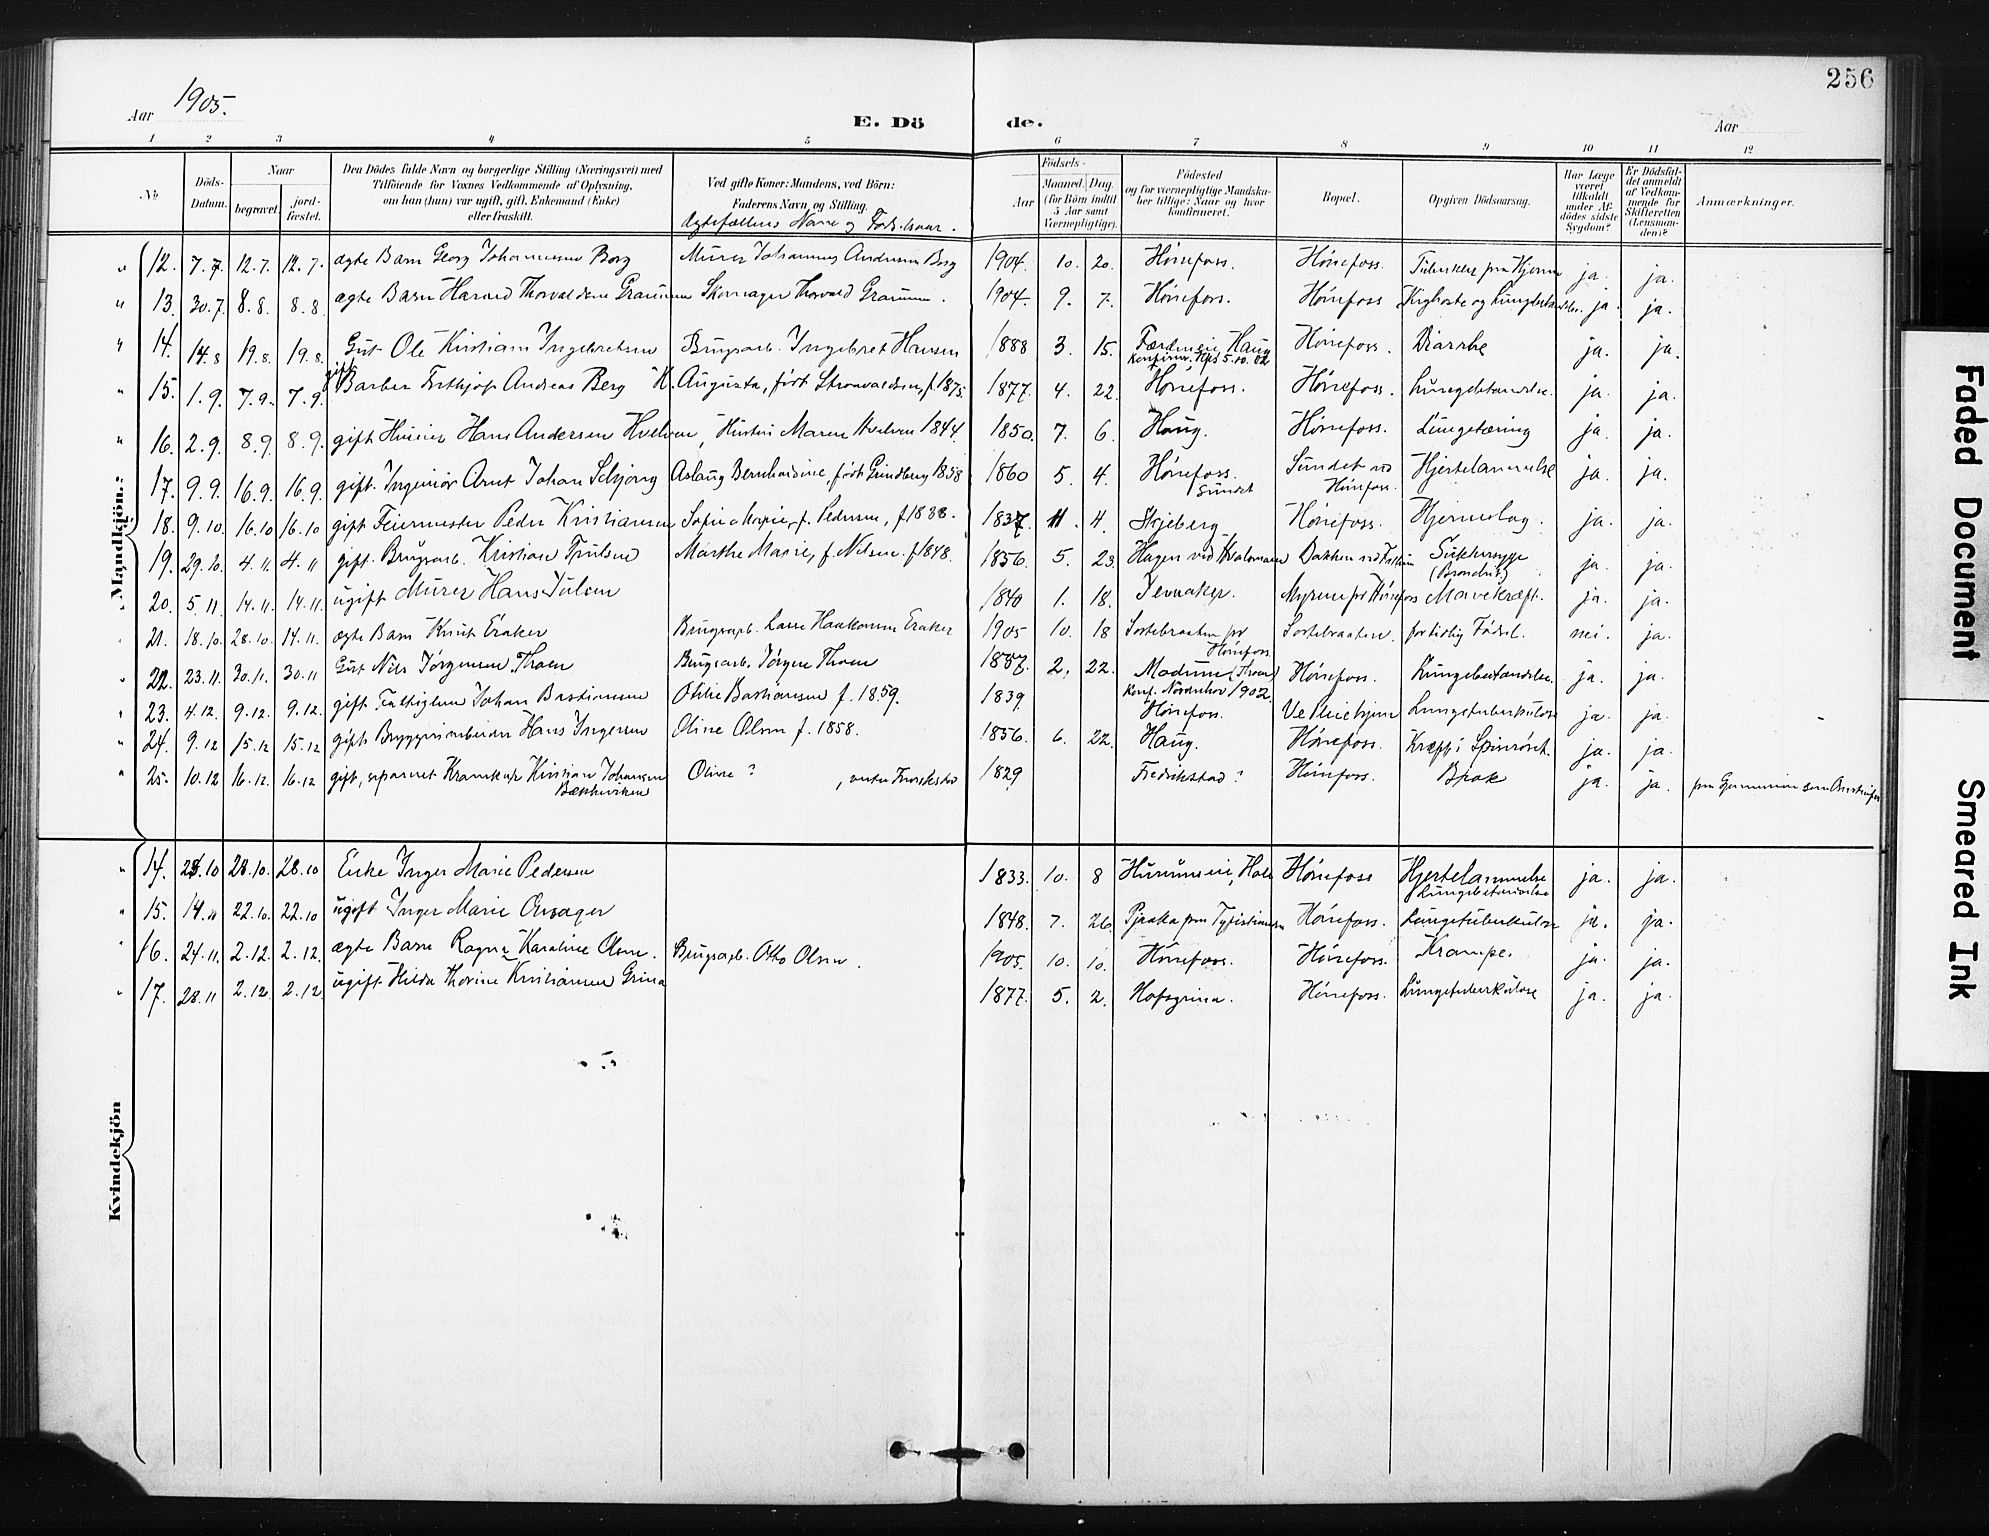 256
Aar 1905.
E. Döde.
Aar
1 2 3 4 5 6 7 8 9 10 11 12
No
Döds-Datum.
Naar
begravet.
jord-fæstet.
Den Dödes fulde Navn og borgerlige Stilling (Næringsvei) med
Tilföiende for Voxnes Vedkommende af Oplysning,
om han (hun) var ugift, gift, Enkemand (Enke)
eller fraskilt.
Ved gifte Koner: Mandens, ved Börn:
Faderens Navn og Stilling.
Ægtefællens Navn og Fødselsaar.
Födsels-
Aar
Maaned. Dag.
(for Börn indtil
5 Aar samt
Værnepligtige).
Födested
og for værnepligtige Mandska-
ber tillige: Naar og hvor
konfirmeret.
Bopæl.
Opgiven Dödsaarsag.
Har Læge
været
tilkaldt
under Af-
dödes sidste
Sygdom?
Er Dödsfal-
det anmeldt
af Vedkom-
mende for
Skifteretten
(Lensman-
den)?
Anmærkninger.
Mandkjön:
12. 7.7. 12.7. 12.7. ægte Barn Georg Johannesen Borg Murer Johannes Andersen Borg 1904. 10. 20. Hønefoss. Hønefoss. ja. ja.
13. 30.7. 8.8. 8.8. ægte Barn Harald Thorvaldsen Skomager Thorvald 1904. 9. 7. Hønefoss. Hønefoss Kighoste og Lungebetændelse. ja. ja.
14. 14.8 19.8. 19.8. Gut Ole Kristian Ingebretsen Brugsarb. Ingebret Hansen 1888 3. 15. Færdenseie, Haug Hønefoss. Diarrhe ja. ja.
5.10.02
15. 1.9. 7.9. 7.9. gift Barber Frithjof Andreas Berg K. Augusta, født Stranvaldsen, f. 1875. 1877. 4. 22. Hønefoss. Hønefoss. Lungebetændelse. ja. ja.
16. 2.9. 8.9. 8.9. gift Huseier Hans Andersen Hvelven, Hustru Maren Hvelven 1844. 1850. 7. 6. Haug. Hønefoss. Lungetæring ja. ja.
17. 9.9. 16.9. 16.9. gift Ingeniør Arnt Johan Schjong Aslaug Bernhardine, født Grindberg 1858 1860 5. 4. Hønefoss. Sundet ved Hjertelammelse ja. ja.
Sundet Hønefoss.
18. 9.10 16.10 16.10 gift Feiermester Peder Kristiansen Sofie Marie, f. Pedersen, f. 1838. 1837. 11. 4. Skjeberg Hønefoss. Hjerneslag. ja. ja.
19. 29.10. 4.11. 4.11 gift Brugsarb. Kristian Trulsen Marthe Marie, f. Nilsen. f. 1848. 1856. 5. 23. Hagen ved Bakken ved Sukkersyge ja. ja.
20. 5.11. 14.11. 14.11. ugift Murer Hans Julsen 1840 1. 18. Jevnaker. Myren for Hønefoss Mavekræft. ja. ja.
21. 18.10. 28.10. 14.11. ægte Barn Knut Eraker Brugsarb. Lars Haakonsen Eraker 1905 10. 18 Sortebraaten pr Hønefoss. Sortebraaten. for tidlig Fødsel. nei. ja.
22. 23.11. 30.11. 30.11 Gut Nils Jørgensen Thoen Brugsarb. Jørgen Thoen 1887. 2. 22. Modum (Thoen) Hønefoss. Lungebetændelse. ja. ja.
Konf. Norderhov 1902.
23. 4.12. 9.12. 9.12. gift Fattiglem Johan Bastiansen Otilie Bastiansen f. 1859. 1839 Hønefoss. Lungetuberkulose ja. ja.
24. 9.12 15.12 15.12 gift Bryggeriarbeider Hans Ingersen Oline Olsen f. 1858. 1856. 6. 22. Haug. Hønefoss. Kræft i Spiserøret. ja. ja.
25. 10.12 16.12. 16.12 gift, separeret Kristian Johansen Oline ? 1829 Fredrikstad ? Hønefoss. Brok ja. ja.
Kvindekjön
14. 28.10. 28.10 Enke Inger Marie Pedersen 1833. 10. 8 Hole Hønefoss Hjertelammelse ja. ja.
Lungebetændelse
15. 14. 22.10. 22.10 ugift Inger Marie 1848. 7. 26. Hønefoss. Lungetuberkulose ja. ja.
16. 24.11. 2.12. 2.12. ægte Barn Ragna Karoline Olsen. Brugsarb. Otto Olsen. 1905. 10. 10. Hønefoss. Hønefoss. Krampe. ja. ja.
17. 28.11 2.12. 2.12 ugift Hilda Thorine Kristiansen Grina 1877. 5. 2. Hofsgrina. Hønefoss. Lungetuberkulose ja. ja.
Faded Document
Smeared Ink